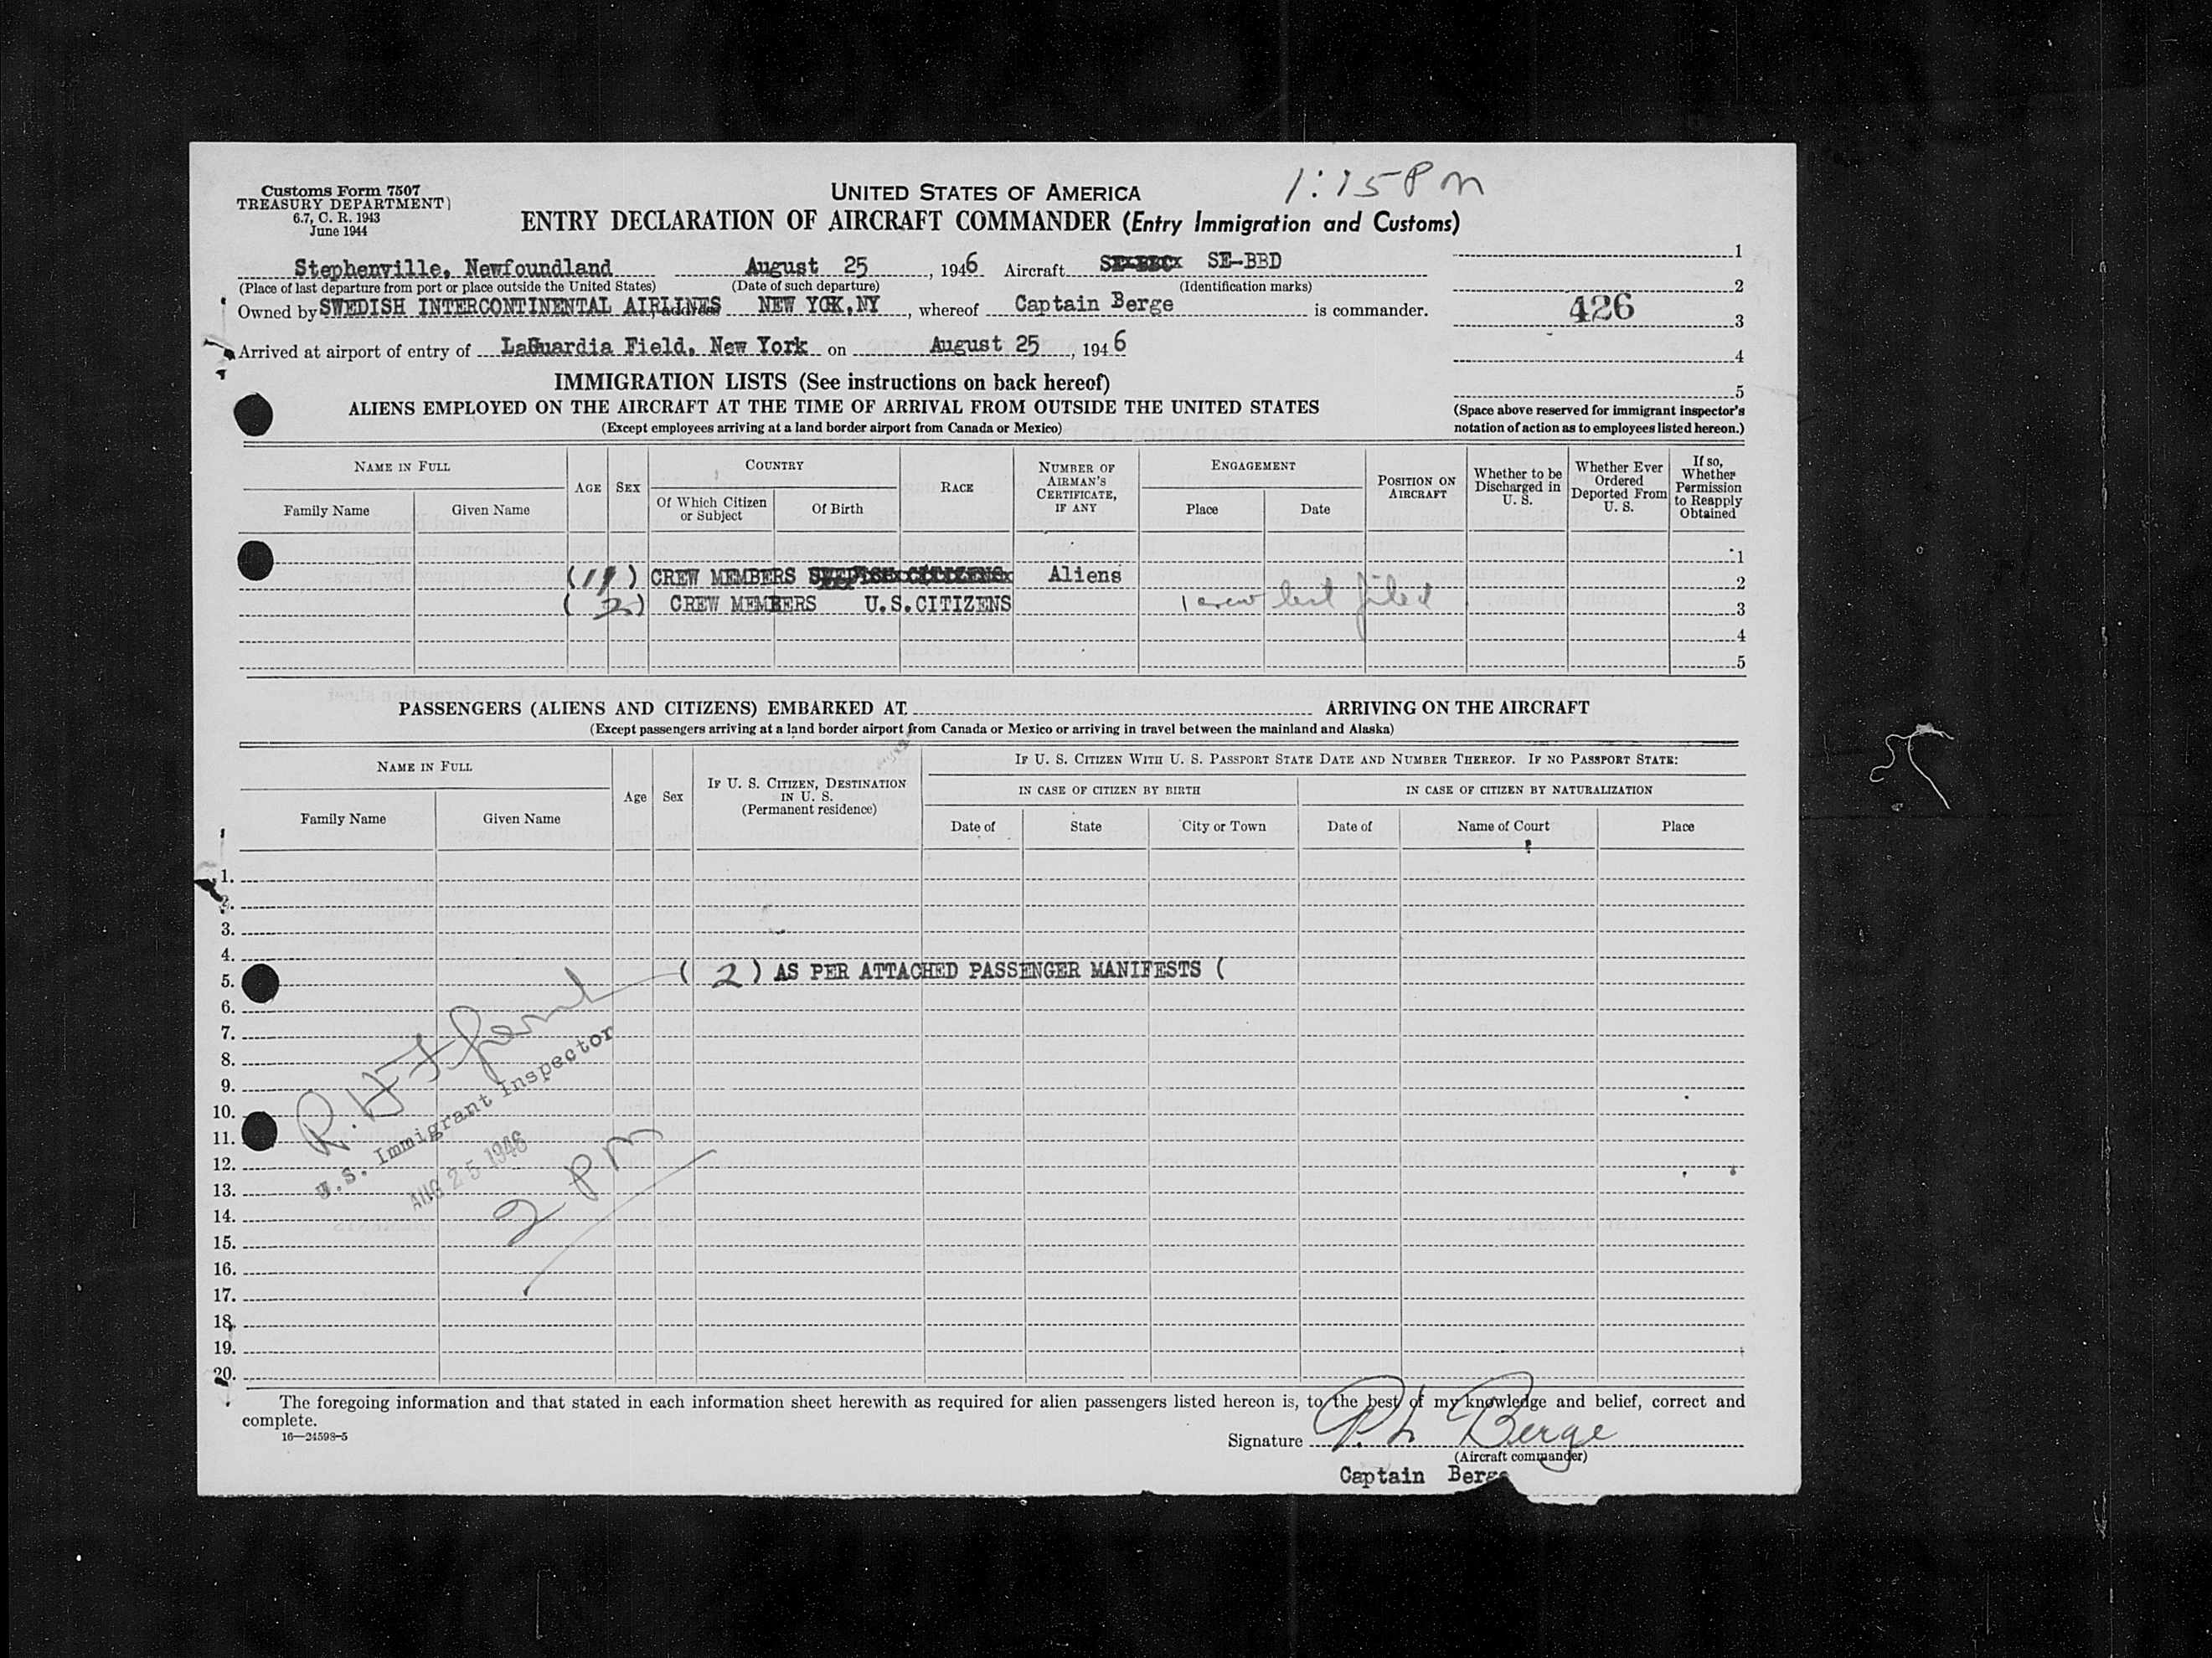 Customs Form 7507
TREASURY DEPARTMENT)
6.7, C. R. 1943
June 1944
UNITED STATES OF AMERICA
1:15 PM
ENTRY DECLARATION OF AIRCRAFT COMMANDER (Entry Immigration and Customs)
Stephenville, Newfoundland August 25, 1946 Aircraft SE-BBD
(Place of last departure from port or place outside the United States) (Date of such departure) (Identification marks)
Owned by SWEDISH INTERCONTINENTAL AIRLINES, address NEW YOK,NY, whereof Captain Berge is commander.
Arrived at airport of entry of LaGuardia Field, New York on August 25, 1946
1
2
426
3
4
5
(Space above reserved for immigrant inspector's
notation of action as to employees listed hereon.)
IMMIGRATION LISTS (See instructions on back hereof)
ALIENS EMPLOYED ON THE AIRCRAFT AT THE TIME OF ARRIVAL FROM OUTSIDE THE UNITED STATES
(Except employees arriving at a land border airport from Canada or Mexico)
NAME IN FULL
Family Name
Given Name
AGE
SEX
COUNTRY
Of Which Citizen
or Subject
Of Birth
RACE
NUMBER OF
AIRMAN'S
CERTIFICATE,
IF ANY
ENGAGEMENT
Place
Date
POSITION ON
AIRCRAFT
Whether to be
Discharged in
U. S.
Whether Ever
Ordered
Deported From
U. S.
If so,
Whether
Permission
to Reapply
Obtained
1
(11) CREW MEMBERS SWEDISH CITIZENS Aliens 2
(2) CREW MEMBERS U.S.CITIZENS 1 crew list filed 3
4
5
PASSENGERS (ALIENS AND CITIZENS) EMBARKED AT ARRIVING ON THE AIRCRAFT
(Except passengers arriving at a land border airport from Canada or Mexico or arriving in travel between the mainland and Alaska)
NAME IN FULL
Family Name
Given Name
Age
Sex
IF U. S. CITIZEN, DESTINATION
IN U. S.
(Permanent residence)
IF U. S. CITIZEN WITH U. S. PASSPORT STATE DATE AND NUMBER THEREOF. IF NO PASSPORT STATE:
IN CASE OF CITIZEN BY BIRTH
Date of
State
City or Town
IN CASE OF CITIZEN BY NATURALIZATION
Date of
Name of Court
Place
1.
2.
3.
4.
5. (2) AS PER ATTACHED PASSENGER MANIFESTS (
6.
7.
8.
9.
10.
11.
12.
13.
14.
15.
16.
17.
18.
19.
20.
R. H.
U.S. Immigrant Inspector
AUG 25 1946
2 PM
The foregoing information and that stated in each information sheet herewith as required for alien passengers listed hereon is, to the best of my knowledge and belief, correct and
complete.
16—24598-5
Signature Ph Berge
(Aircraft commander)
Captain Berge